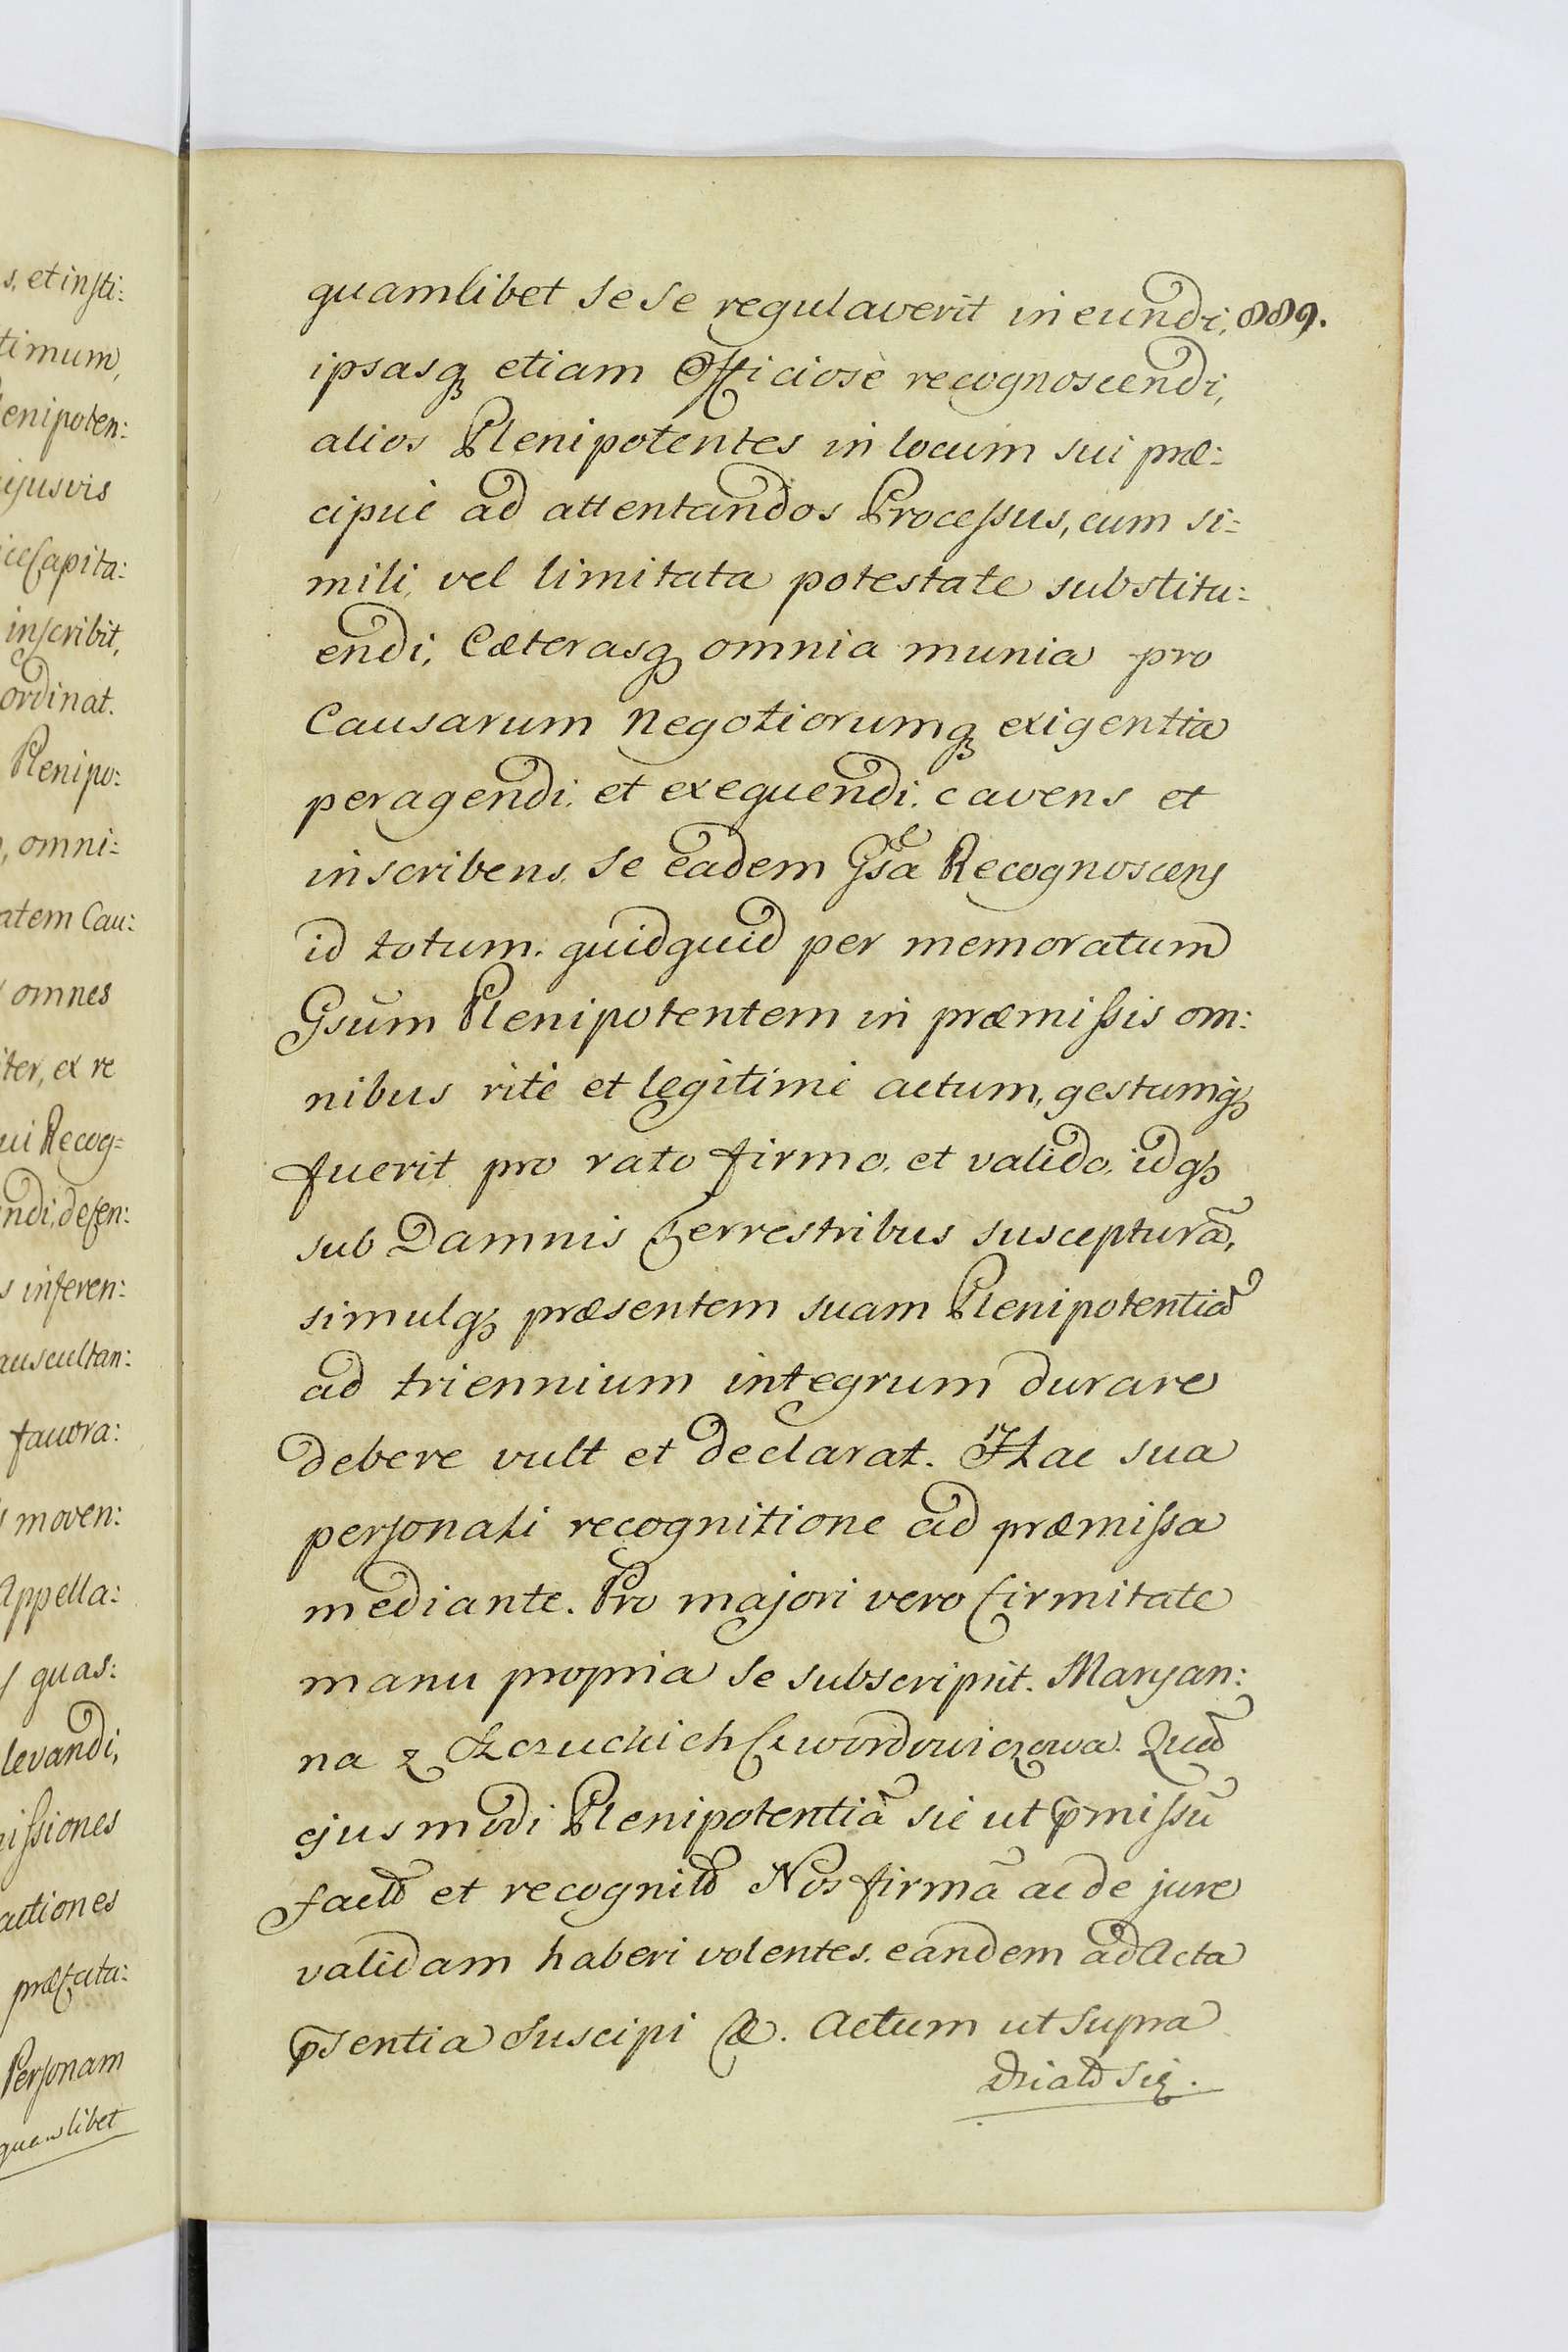 s, et insti:
timum,
lenipoten:
ujusvis
iceCapita:
inscribit,
ordinat.
Plenipo:
, omni:
atem Cau:
omnes
iter, ex re
ui Recog=
ndi, defen:
s inferen:
auscultan:
favora:
s moven:
Appella:
quas:
levandi,
issiones
actiones
præfata:
Personam
quamlibet
quamlibet se se regulaverit in eundi, 889.
ipsasq₃ etiam Officiosè recognoscendi,
alios Plenipotentes in locum sui præ:
cipuè ad attentandos Processus, cum si=
mili vel limitata potestate substitu:
endi, Cæterasq₃ omnia munia pro
Causarum negotiorumq₃ exigentia
peragendi et exequendi. cavens et
inscribens se eadem Gsa Recognoscens
id totum quidquid per memoratum
Gsum Plenipotentem in præmissis om:
nibus ritè et legitimè actum, gestumq₃
fuerit pro rato firmo, et valido, idq₃
sub Damnis Terrestribus suscepturã,
simulq₃ præsentem suam Plenipotentiã
ad triennium integrum durare
debere vult et declarat. Hac sua
personali recognitione ad præmissa
mediante. Pro majori vero firmitate
manu propria se subscripsit. Maryan:
na z Szczuckich Skwordowiczowa. Quã
ejusmodi Plenipotentiã sic ut p̃missũ
factã et recognitã Nos firmã ac de jure
validam haberi volentes, eandem ad Acta
p̃sentia suscipi &. Actum ut supra